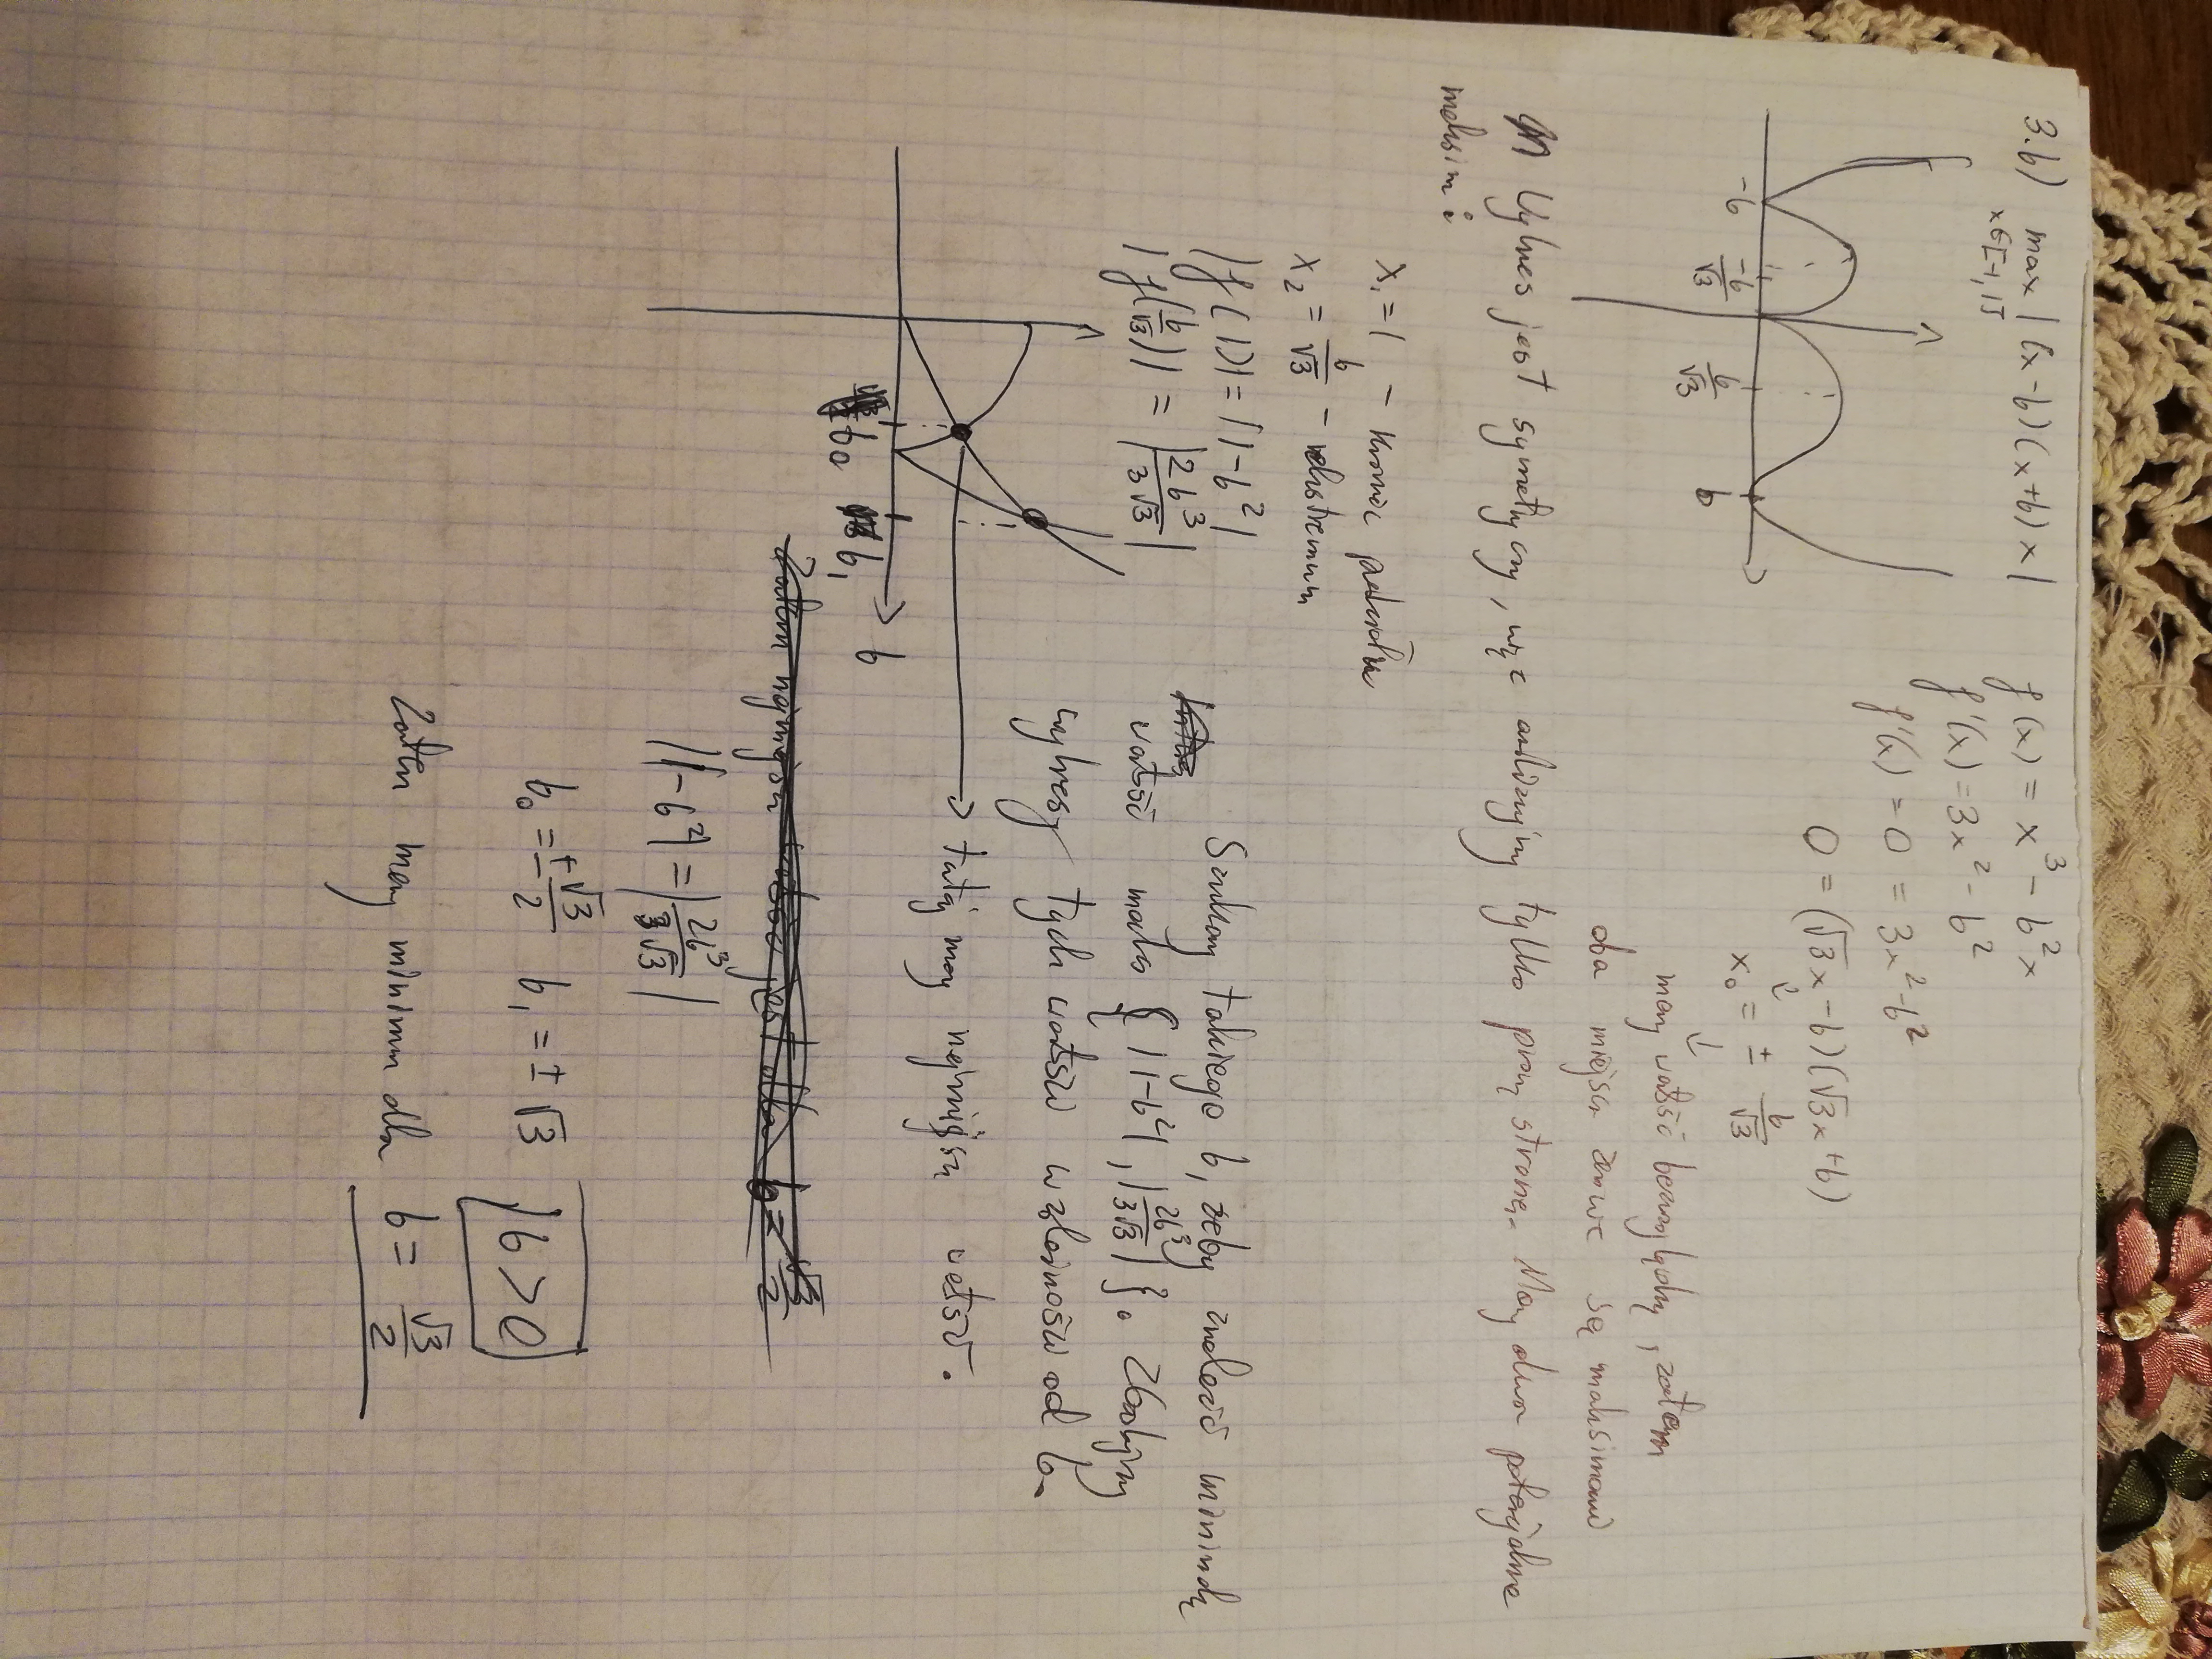 3.b) max |(x-b)(x+b)x|
x∈[-1,1]
f(x) = x³ - b²x
f'(x) = 3x² - b²
f'(x) = 0 = 3x² - b²
0 = (√3x - b)(√3x + b)
x₀ = ± b/√3
-b -b/√3 b/√3 b
mamy wartość bezwzględną, zatem
oba miejsca zerowe są maksimami
Wykres jest symetryczny, więc analizujemy tylko prawą stronę. Mamy dwa potencjalne
maksima:
x₁ = 1 - koniec przedziału
x₂ = b/√3 - ekstremum
|f(1)| = |1-b²|
|f(b/√3)| = |2b³/3√3|
Szukamy takiego b, żeby znaleźć minimalną
wartość maks { |1-b²|, |2b³/3√3| }. Zbadajmy
wykresy tych wartości w zależności od b.
b₀ b₁ b
tutaj mamy najmniejszą wartość.
|1-b²| = |2b³/3√3|
b₀ = ±√3/2 b₁ = ±√3 b>0
Zatem mamy minimum dla b = √3/2